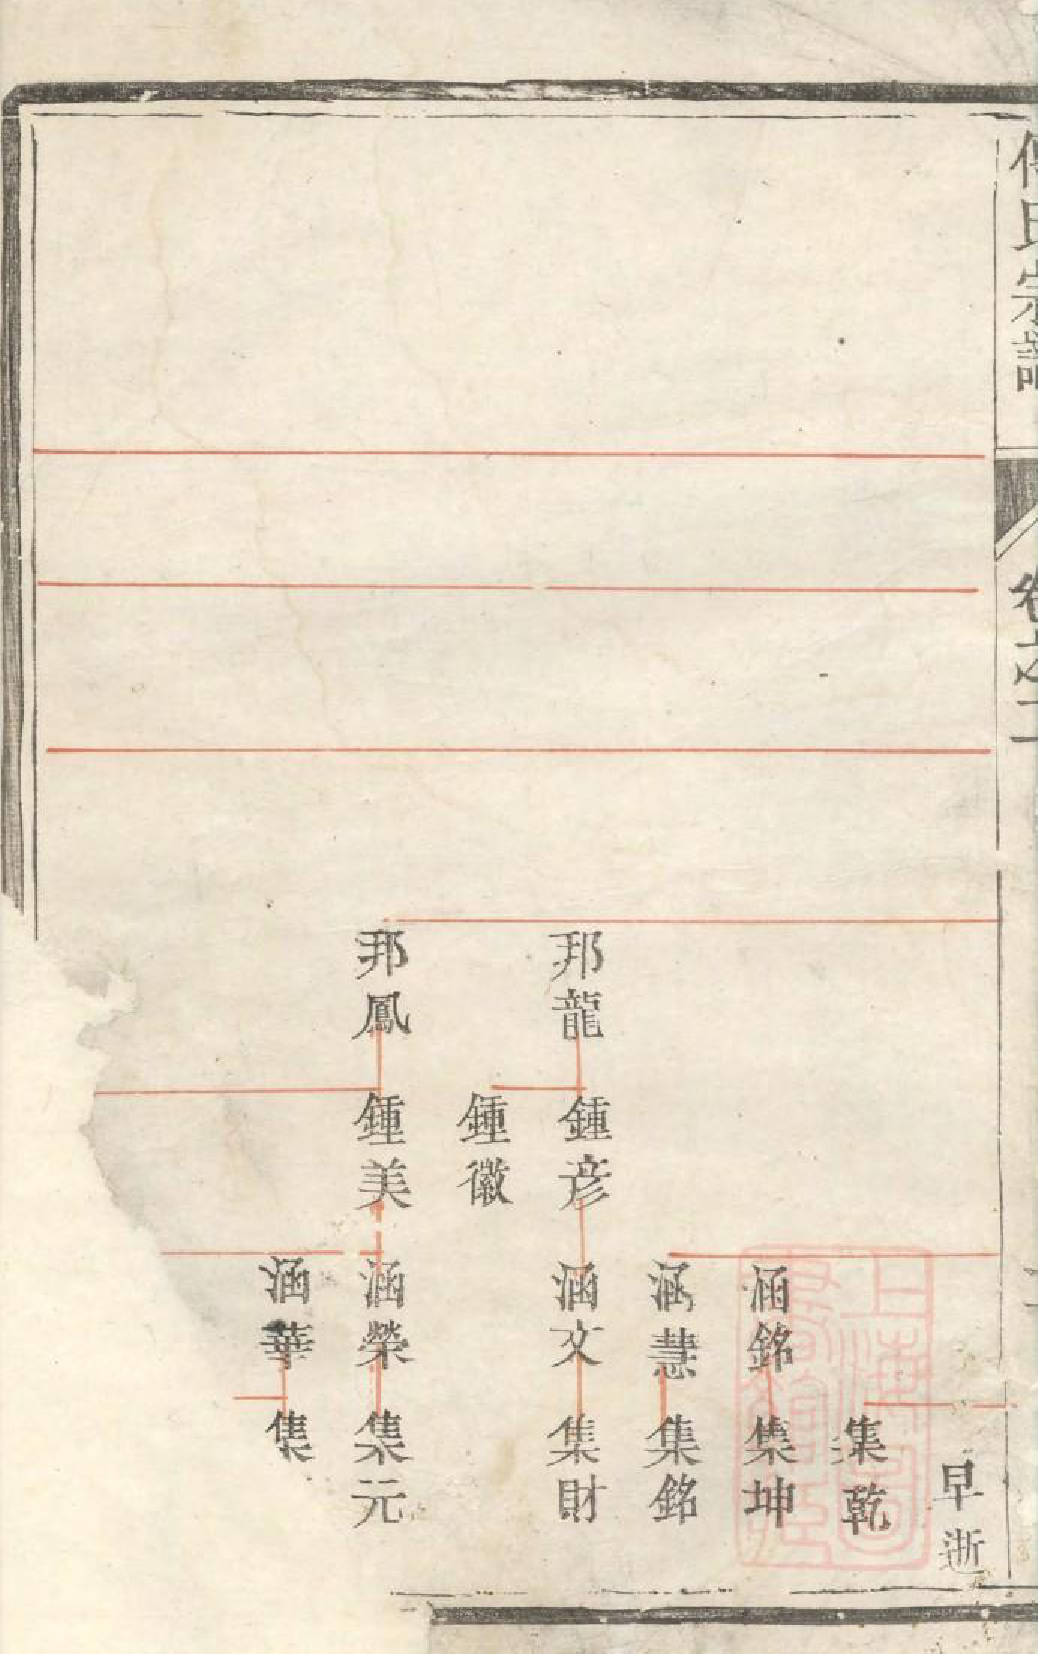 傅氏宗譜
卷之二
早逝
集乾
涵銘
集坤
涵慧
集銘
邦龍
鍾彦
涵文
集財
鍾徽
邦鳳
鍾美
涵榮
集元
涵華
集
上海圖書館藏